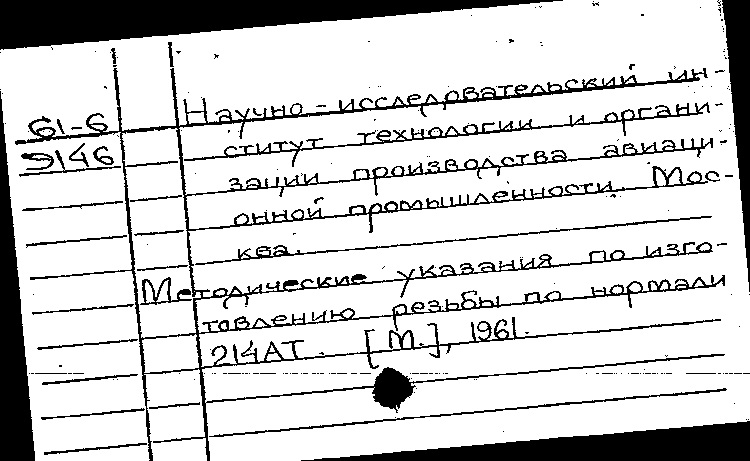 61-6
9146
Научно-исследовательский ин-
ститут технологии и органи-
зации производства авиаци-
онной промышленности. Мос-
ква.
Методические указания по изго-
товлению резьбы по нормали
214АТ. [М.], 1961.